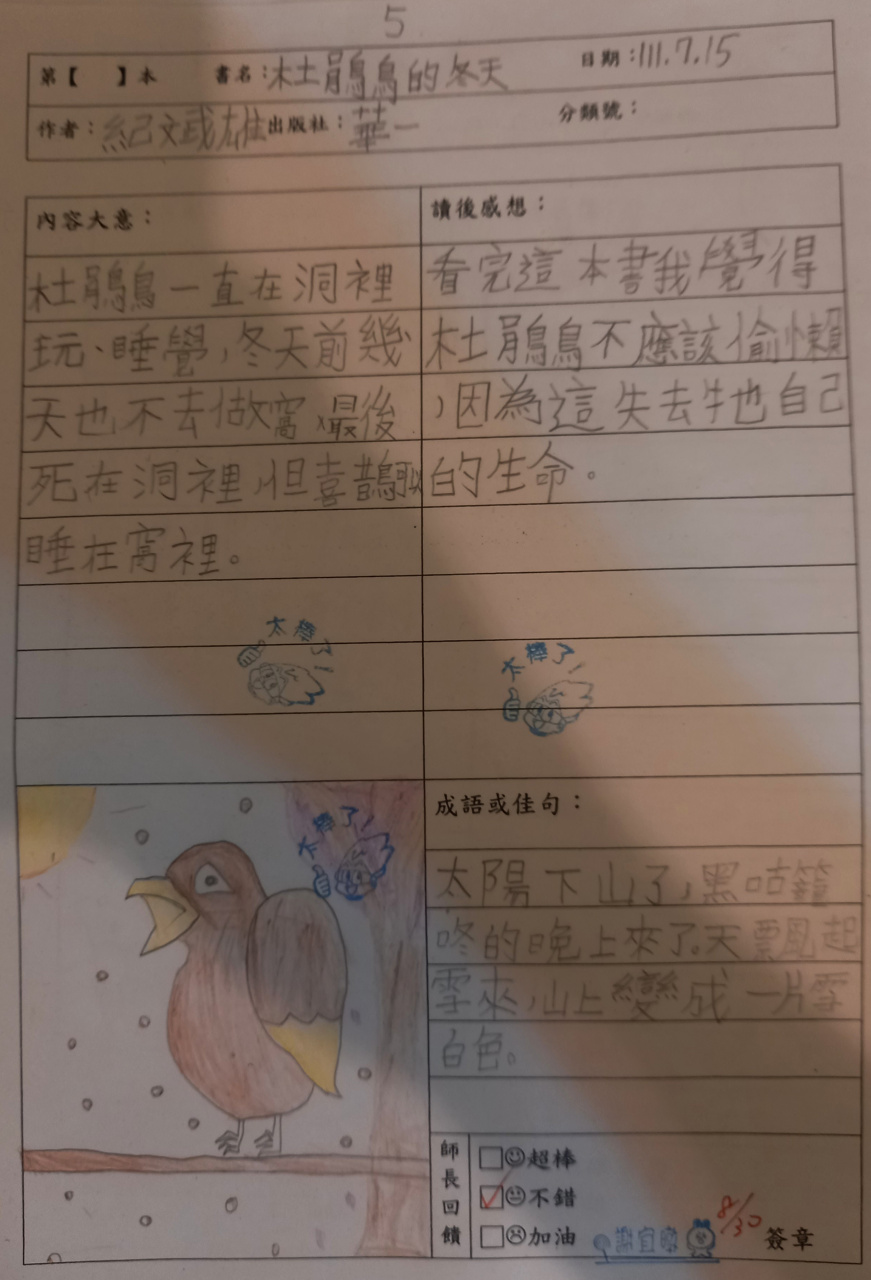 5
第【 】本 書名：杜鵑鳥的冬天 日期：111.7.15
作者：紀斌雄 出版社：華一 分類號：
內容大意：
杜鵑鳥一直在洞裡
玩、睡覺，冬天前幾
天也不去做窩，最後
死在洞裡，但喜鵲
睡在窩裡。
太棒了！
讀後感想：
看完這本書我覺得
杜鵑鳥不應該偷懶
，因為這失去牠自己
的生命。
太棒了！
太棒了！
成語或佳句：
太陽下山了，黑咕籠
咚的晚上來了。天飄起
雪來，山上變成一片雪
白色。
師長回饋
超棒
不錯
加油
謝宜 8/30 簽章